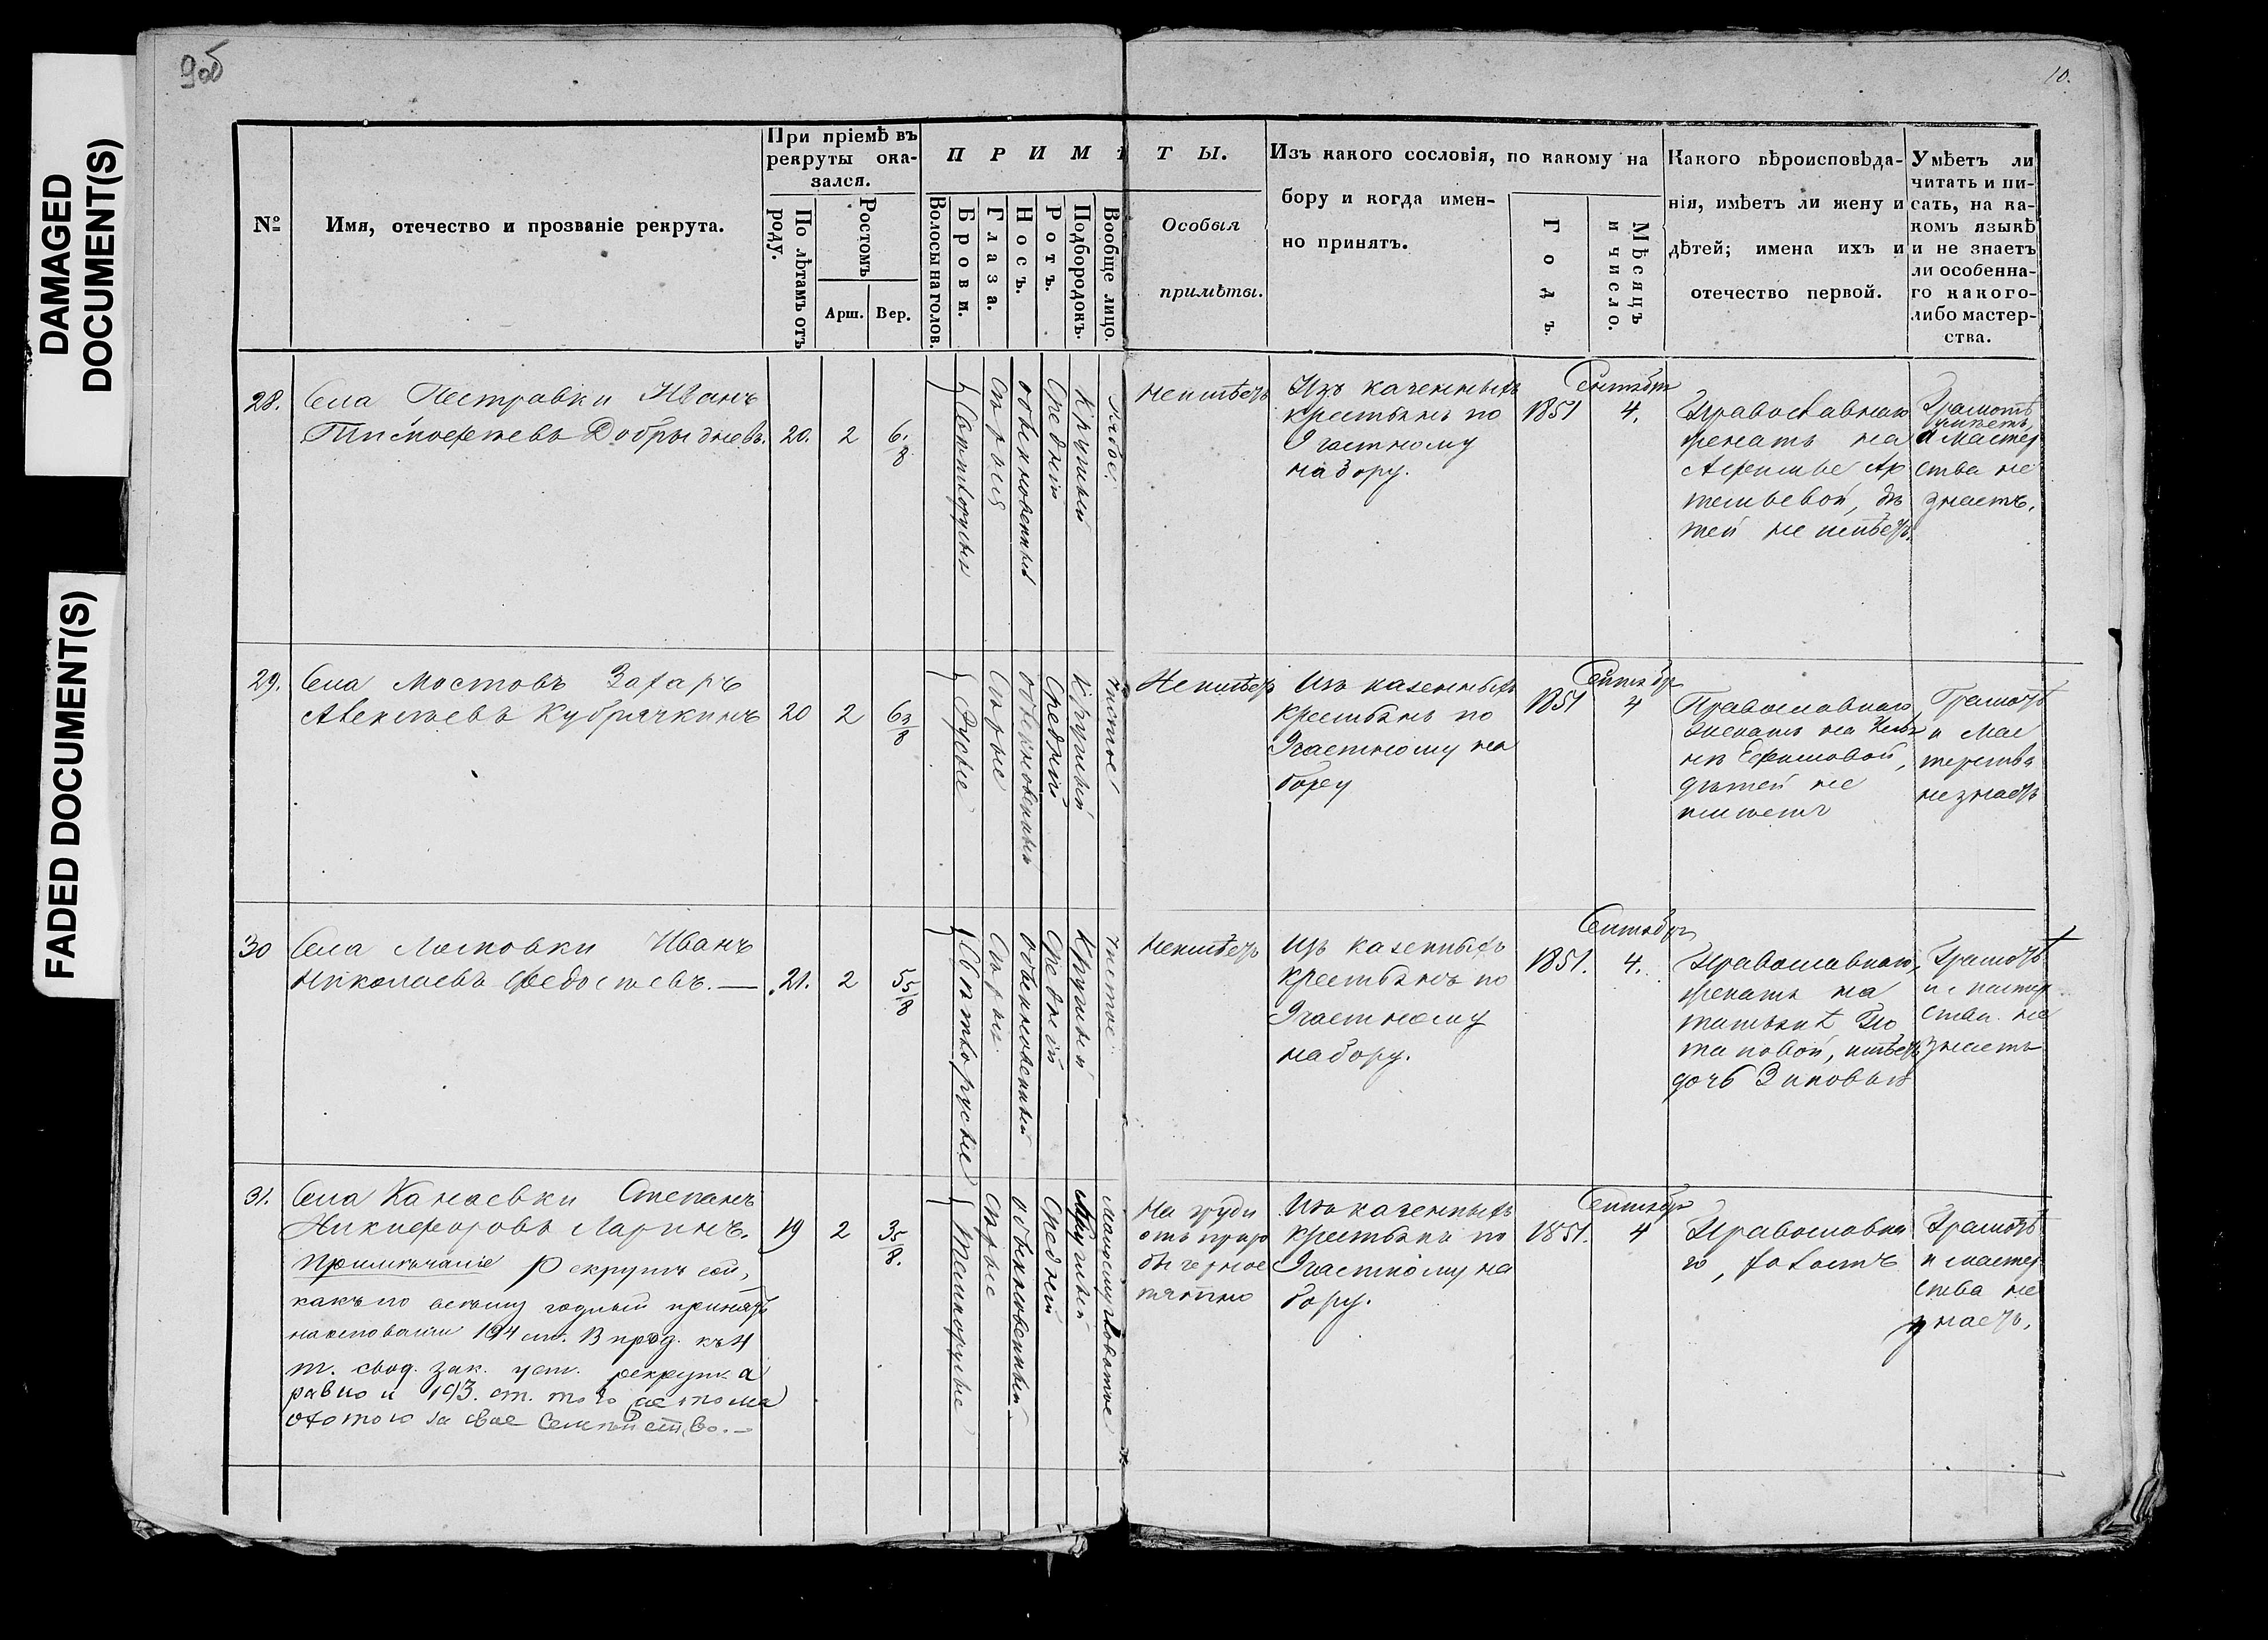 DAMAGED
DOCUMENT(S)
FADED DOCUMENT(S)
9об
10.
№
Имя, отечество и прозваніе рекрута.
При пріемѣ въ
рекруты ока-
зался.
По лѣтамъ отъ
роду.
Ростомъ
Арш.
Вер.
П Р И М Ѣ Т Ы.
Волосы на голов.
Брови.
Глаза.
Носъ.
Ротъ.
Подбородокъ.
Вообще лицо.
Особыя
примѣты.
Изъ какого сословія, по какому на
бору и когда имен-
но принятъ.
Годъ.
Мѣсяцъ
и число.
Какого вѣроисповѣда-
нія, имѣетъ ли жену и
дѣтей; имена ихъ и
отечество первой.
Умѣетъ ли
читать и пи-
сать, на ка-
комъ языкѣ
и не знаетъ
ли особенна-
го какого-
либо мастер-
ства.
28.
Села Пестравки Иванъ
Тимофеевъ Добрыдневъ.
20.
2
6/8
Свѣтлорусыя
Сѣрыя
обыкновенный
Средній
Круглый
неимѣетъ
Изъ казенныхъ
крестьянъ по
9 частному
набору.
1851
Сентября
4.
Православнаго
женатъ на
Ар
темьевой, дѣ
тей не имѣетъ.
Грамотѣ
умѣетъ,
а мастер
ства не
знаетъ.
29.
Села Мостовъ Захаръ
Алексѣевъ Кубрячкинъ
20
2
6 3/8
Русые
Сѣрые
обыкновенный
Средній
Круглый
чистое
Неимѣетъ
Изъ казенныхъ
крестьянъ по
9 частному на
бору
1851
Сентября
4
Православнаго
женатъ на
Ефимовой,
дѣтей не
имѣетъ
Грамотѣ
и мас
терства
незнаетъ
30
Села Ломовки Иванъ
Николаевъ Федосѣевъ. —
21.
2
5 5/8
Свѣтлорусые
Сѣрые
обыкновенный
Средній
Круглый
чистое
Неимѣетъ
Изъ казенныхъ
крестьянъ по
9 частному
набору.
1851.
Сентября
4.
Православнаго,
женатъ на
Татьянѣ По
таповой, имѣетъ
дочь Зиновью
Грамотѣ
и мастер
ства не
знаетъ
31.
Села Канаевки Степанъ
Никифоровъ Ларинъ.
Примѣчаніе Рекрутъ сей,
какъ по всему годный принятъ
на основаніи 194 ст. В прод. къ 4
т. свод. зак. уст. рекрут. а
равно и 193. ст. того же тома
охотою за свое Семейство. —
19
2
3 5/8.
Темнорусые
Сѣрые
обыкновенный
Средній
Круглый
На груди
отъ приро
ды черное
пятно
Изъ казенныхъ
крестьянъ по
9 частному на
бору.
1851.
Сентября
4
Православна
го, холостъ
Грамотѣ
и мастер
ства не
знаетъ.